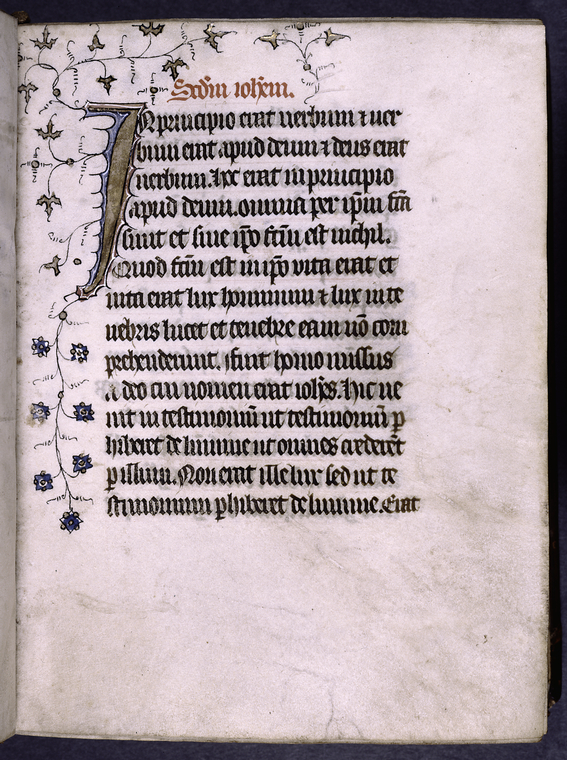 Scd'm ioh'em.
In principio erat uerbum ⁊ uer
bum erat apud deum ⁊ deus erat
uerbum. hoc erat in principio
apud deum. omnia per ip̄m fc̄a
sunt et sine ip̄o fc̄m est nichil.
Quod fc̄m est in ip̄o vita erat et
uita erat lux hominum ⁊ lux in te
nebris lucet et tenebre eam nō com
prehenderunt. ffuit homo missus
a deo cui nomen erat ioh̄es. hic ue
nit in testimoniū ut testimonium ꝑ
hiberet de lumine ut omnes crederēt
ꝑ illum. Non erat ille lux sed ut te
stimonium ꝑhiberet de lumine. Erat